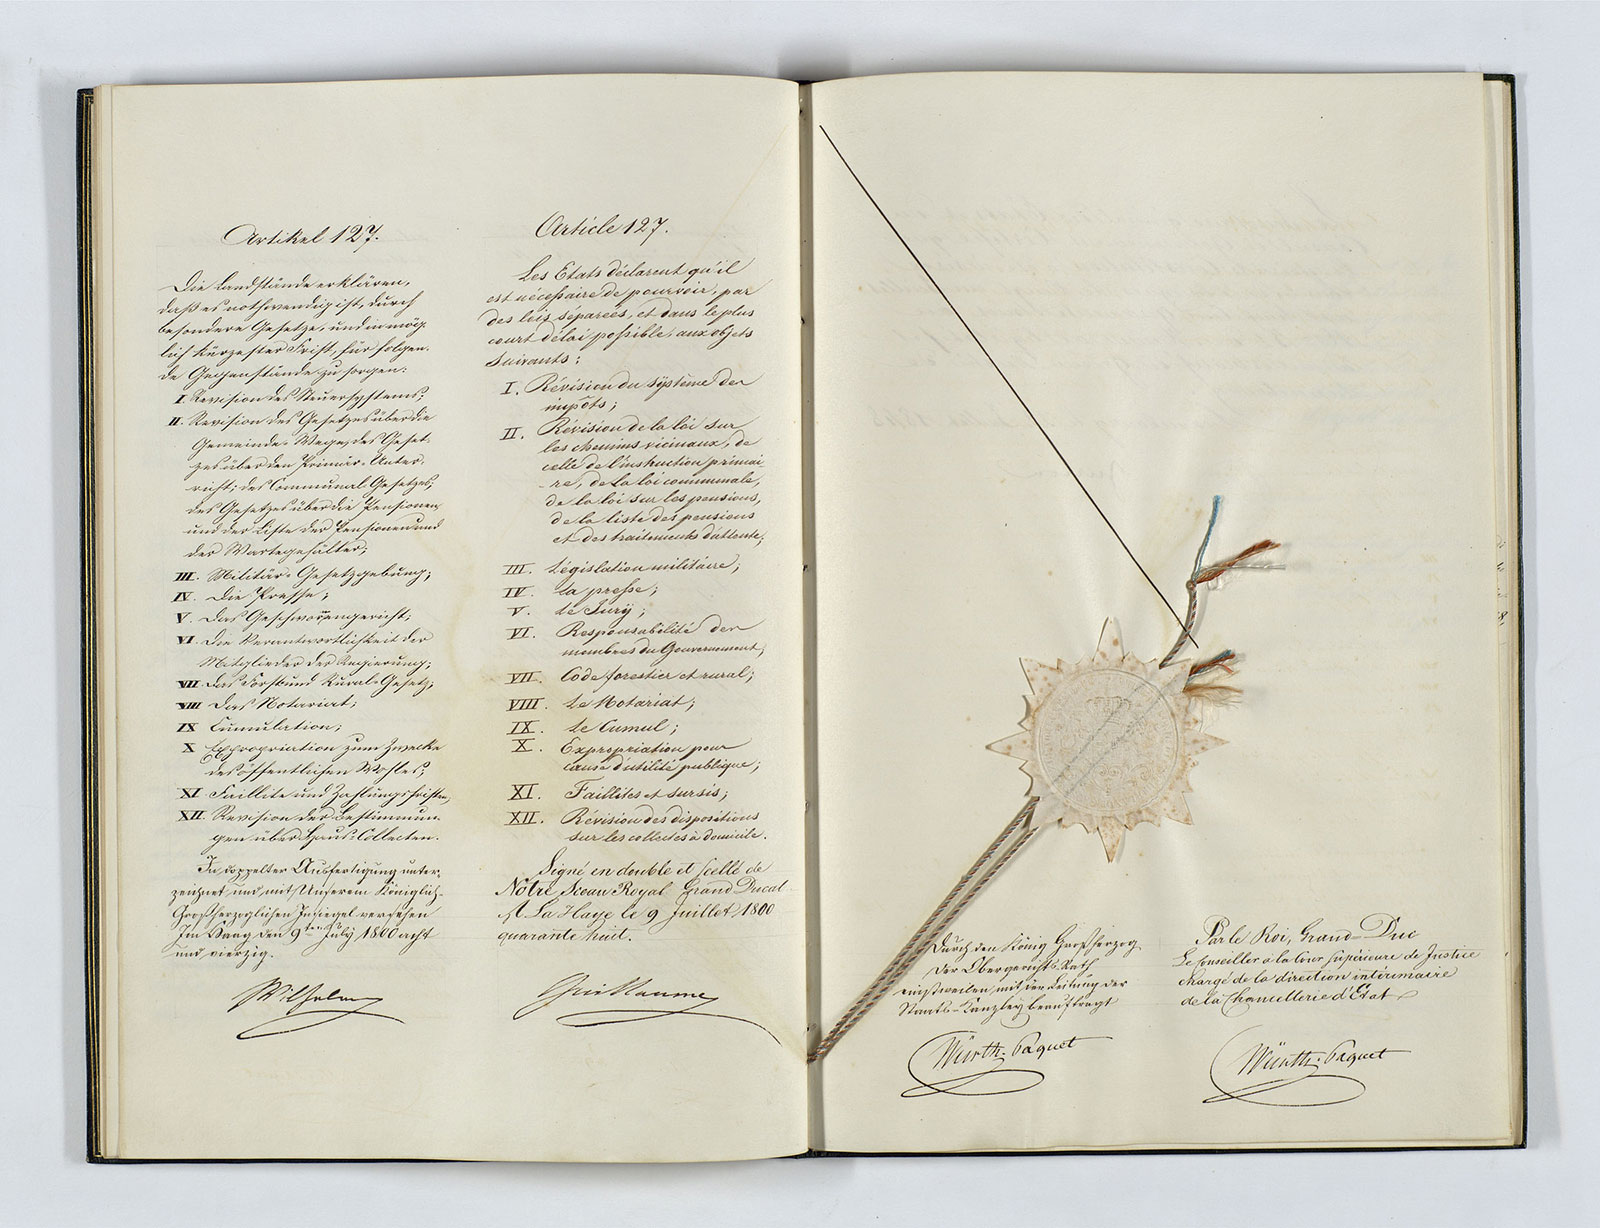 Artikel 127.
Die Landstände erklären,
daß es nothwendig ist, durch
besondere Gesetze, und in mög-
lich kürzester Frist, für folgen-
de Gegenstände zu sorgen:
I. Revision des Steuersystems;
II. Revision des Gesetzes über die
Gemeinde-Wege, des Geset-
zes über den Primär-Unter-
richt; des Communal-Gesetzes,
des Gesetzes über die Pensionen
und der Liste der Pensionen und
der Wartegehälter;
III. Militär-Gesetzgebung;
IV. Die Presse;
V. Das Geschworengericht;
VI. Die Verantwortlichkeit der
Mitglieder der Regierung;
VII. Das Forst und Rural-Gesetz;
VIII Das Notariat;
IX Cumulation;
X Expropriation zum Zwecke
des öffentlichen Wohles;
XI Faillite und Zahlungsfristen,
XII. Revision der Bestimmun-
gen über Haus-Collecten.
In doppelter Ausfertigung unter-
zeichnet und mit Unserem Königlich-
Großherzoglichen Insiegel versehen
Im Haag den 9ten July 1800 acht
und vierzig.
Wilhelm
Article 127.
Les Etats déclarent qu'il
est nécessaire de pourvoir, par
des lois séparées, et dans le plus
court délai possible, aux objets
suivants:
I. Révision du système des
impôts;
II. Revision de la loi sur
les chemins vicinaux, de
celle de l'instruction primai
-re, de la loi communale,
de la loi sur les pensions,
de la liste des pensions
et des traitements d'attente;
III. Législation militaire;
IV. La presse;
V. Le Jury;
VI. Responsabilité des
membres du Gouvernement;
VII. Code forestier et rural;
VIII. Le Notariat;
IX. Le Cumul;
X. Expropriation pour
cause d'utilité publique;
XI. Faillites et sursis;
XII. Révision des dispositions
sur les collectes à domicile.
Signé en double et scellé de
Notre Sceau Royal Grand Ducal
A La Haye le 9 Juillet 1800
quarante huit.
Guillaume
Durch den König Großherzog
Der Obergerichts-Rath
einstweilen mit der Leitung der
Staats-Kanzley beauftragt
Würth-Paquet
Par le Roi, Grand-Duc
Le Conseiller à la Cour supérieure de Justice
chargé de la direction intérimaire
de la Chancellerie d'Etat
Würth-Paquet